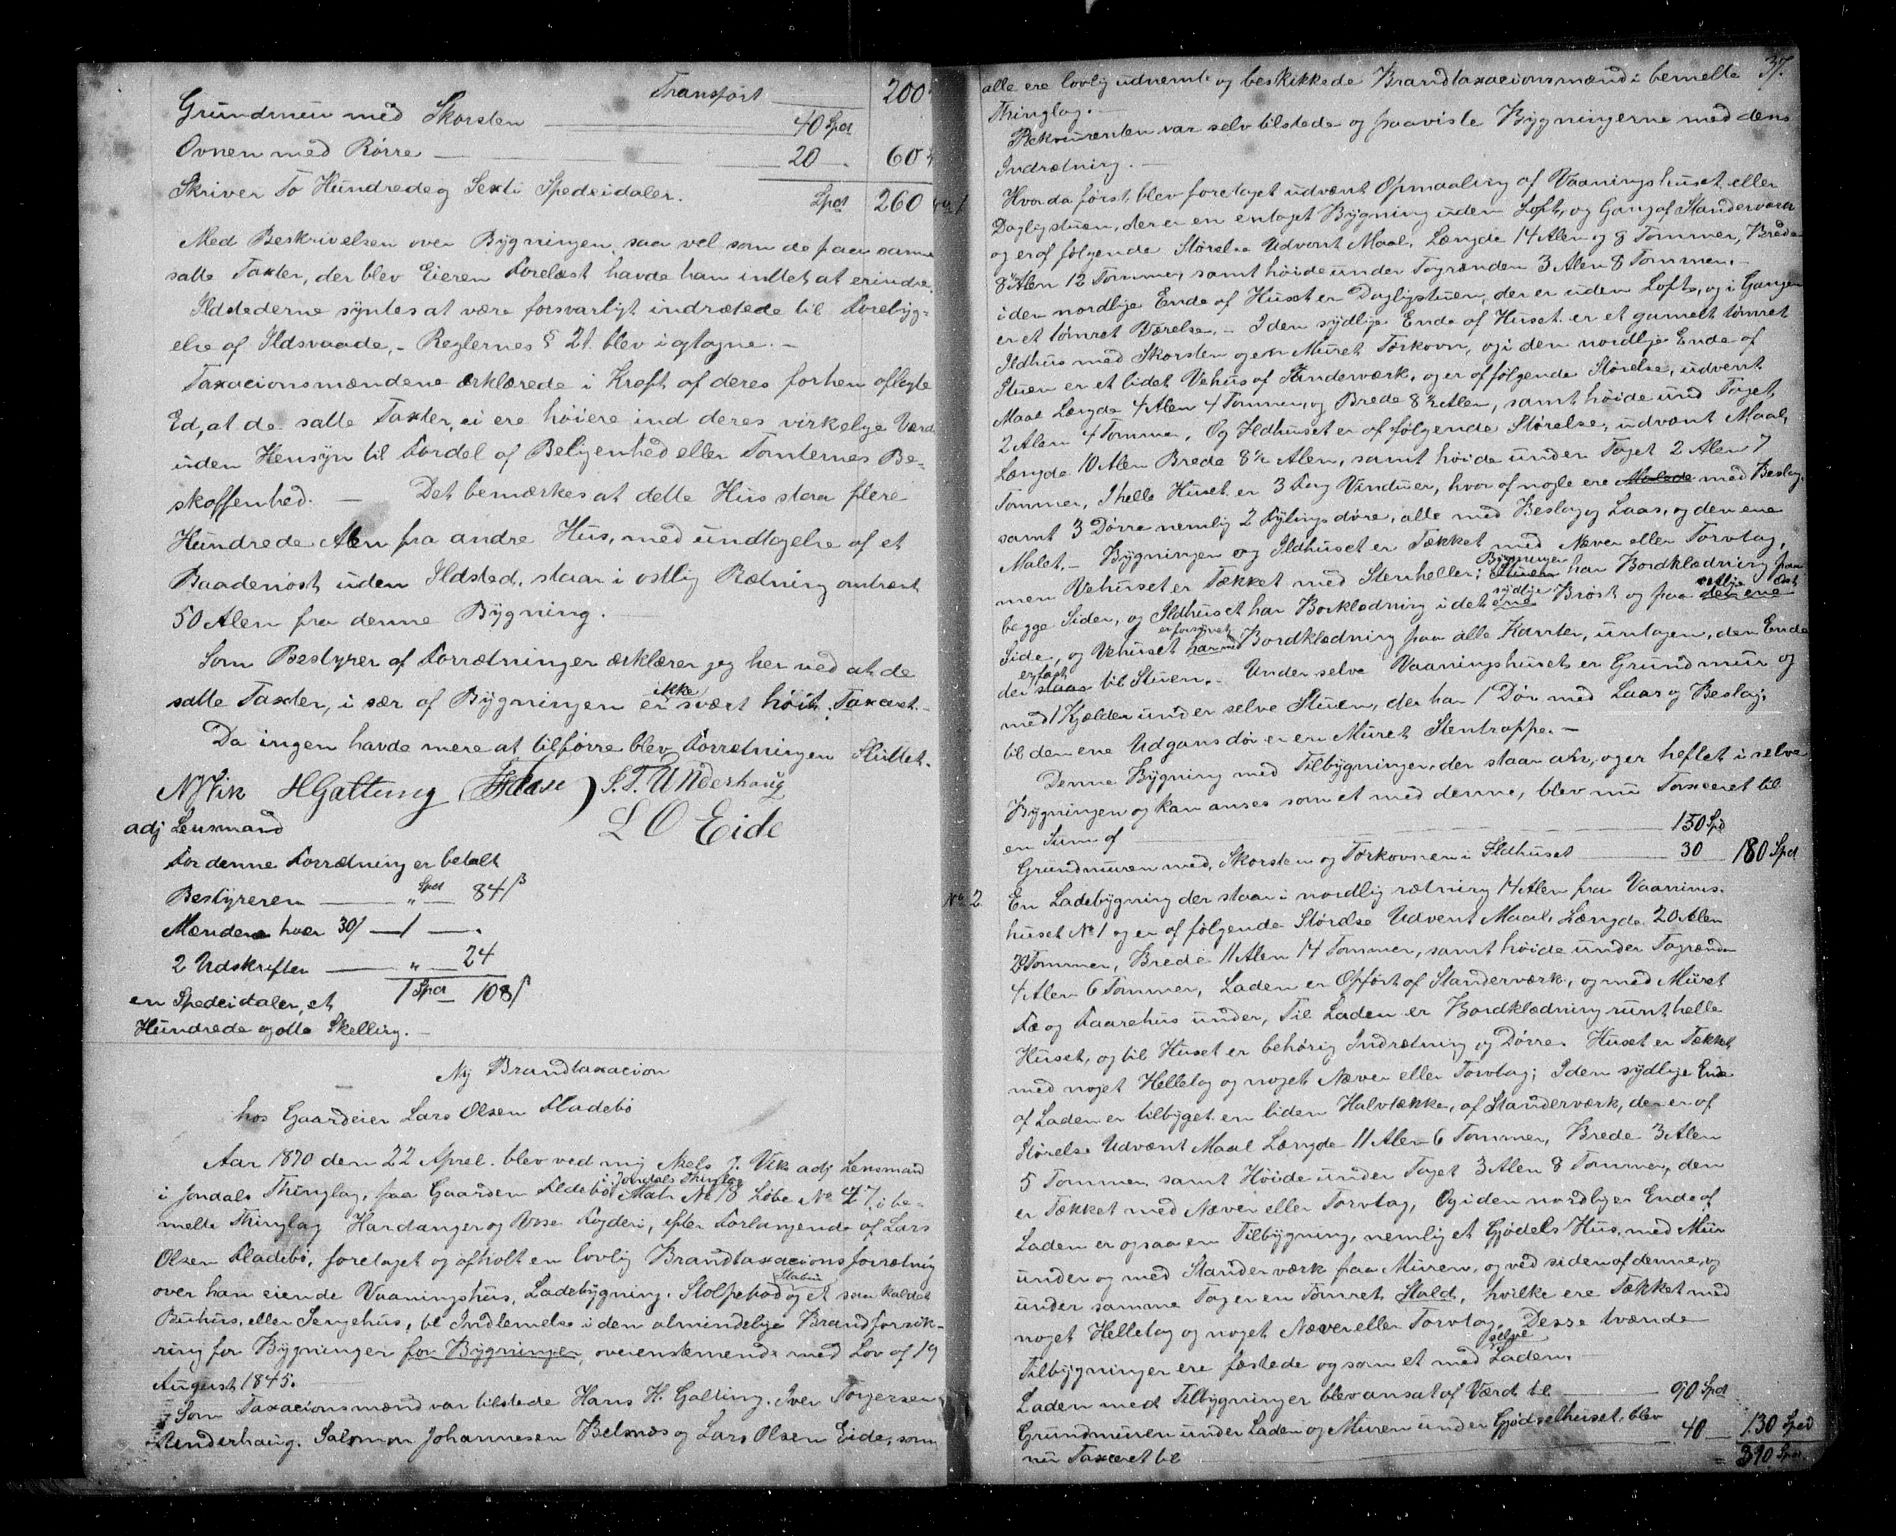 Transport 200
Grundmuu med Skorsten 40 Spd
Ovnen med Rörre 20 60
Skriver To Hundredeg Sexti Spedsidaler. Spd 260
Med Beskrivelsen over Bygningen, saa vel som de paa samme
satte Taxter, der blev Eieren Forelæst havde han intet at erindre.
Ildstederne syntes at være forsvarligt indrætede til Forebyg-
else af Ildsvaade, - Reglernes § 21 blev iagtagne. -
Taxacionsmændene ærklærede i Kraft af deres forhen aflagte
Ed, at de satte Taxter, ei ere höiere ind deres virkelige Værd
uden Hensyn til Fordel af Beligenhed eller Tomternes Be-
skaffenhed. — Det bemærkes at dette Hus staa flere
Hundrede Alen fra andre Hus, med undtagelse af et
Baadenöst uden Ildsted, staar i ostlig Rætning omtrent
50 Alen fra denne Bygning. —
Som Bestyrer af Forrætninger ærklærer jeg her ved at de
satte Taxter, i sær af Bygningen er ikke svært höit Taxeret. -
Da ingen havde mere at tilförre blev Forrætningen Sluttet. -
N J Vik H Galtung S. T. Underhaug
adj Lensmand L O Eide
For denne Forrætning er betalt
Bestyreren — Spd " — 84 ß
Mændene hver 30/ — 1 — .
2 Udskrifter — " — 24
1 Spd 108 ß
en Spedsidaler, et
Hundrede og otte Skelling. —
Ny Brandtaxacion
hos Gaardeier Lars Olsen Fladebö
Aar 1870 den 22 Aprel. blev ved mig Niels J. Vik adj Lensmand
i Jondals Thinglag, paa Gaarden Fladebö i Jondals Thinglag Matr No 18 Löbe No 47, i be-
melte Thinglag Hardanger og Voss Fogderi, efter Forlangende af Lars
Olsen Fladebö, foretaget og afholt en lovlig Brandtaxacionsforrætning
over ham eiende Vaaningshus, Ladebygning, Stolpebod Stabur og et saa kaldet
Buhus, eller Sengehus, til Indlemelse i den almindelige Brandforsik-
ring for Bygninger for Bygninger, overenstemende med Lov af 19
August 1845.
Som Taxacionsmænd var tilstede Hans H. Galting, Iver Torgersen
Underhaug, Salomon Johannesen Belsnæs og Lars Olsen Eide, som
37.
alle ere lovlig udnemte og beskikkede Brandtaxacionsmænd i bemelte
Thinglag. —
Rekvirenten var selv tilstede og paaviste Bygningerne med deres
Indrætning. —
Hvorda först blev foretaget udvent Opmaaling af Vaaningshuset eller
Dagligstuen, der er en entaget Bygning uden Loft, og Gang af Standerværk
og er af fölgende Störelse Udvent Maal, Længde 14 Alen og 8 Tommer, Brede
8 Alen 12 Tommer, samt höide under Tagrænden 3 Alen 8 Tommer. —
i den nordlige Ende af Huset er Dagligstuen, der er uden Loft, og i Gangen
er et tömret Værelse. - I den sydlige Ende af Huset er et gamelt tömret
Ildhus med Skorsten og en Muret Tørkovn, og i den nordlige Ende af
Stuen er et lidet Vehus af Standerværk, og er af fölgende Störelse, udvent
Maal Længde 4 Alen 4 Tommer, og Brede 8 ½ Alen, samt höide und Taget
2 Alen 4 Tommer, Og Ildhuset er af fölgende Störelse, udvent Maal,
Længde 10 Alen Brede 8 ½ Alen, samt höide under Taget 2 Alen 7
Tommer, I helle Huset er 3 Fag Vinduer, hvor af nogle ere Malede med Beslag.
samt 3 Dörre nemlig 2 Fylingsdöre, alle med Beslag og Laas, og den ene
Malet. - Bygningen og Ildhuset er Tækket med Næver eller Torvtag,
men Vehuset er Tækket med Stenheller; Bygningen Stuen har Bordklædning paa
begge Sider, og Ildhuset har Borklædning i det sydlige ene Bröst og paa østlige den ene
Side, og Vehuset er forsynet har med Bordklædning paa alle Kanter, untagen, den Ende
der er fæst staar til Stuen. - Under selve Vaaningshuset er Grundmur og
med 1 Kjelder under selve Stuen, der har 1 Dör med Laas og Beslag;
til den ene Udgansdör er en Muret Stentrappe. —
Denne Bygning med Tilbygninger, der staar og er heftet i selve
Bygningen og kan anses som et med denne, blev nu Taxeret til
en Sum af — 150 Spd
Grundmuren med, Skorsten og Torkovnen i Ildhuset — 30 180 Spd
No 2 En Ladebygning der staar i nordlig rætning 14 Alen fra Vaanings-
huset No 1 og er af fölgende Störelse Udvent Maal, Længde 20 Alen
Tommer, Brede 11 Alen 14 Tommer, samt höide under Tagrænden
4 Alen 6 Tommer, Laden er Opfört af Standerværk, og med Muret
Fæ og Faarehus under, Til Laden er Bordklædning runt helle
Huset, og til Huset er behörig Indrætning og Dörre. Huset er Tækket
med noget Helletag og noget Næver eller Torvtag; I den sydlige Ende
af Laden er tilbyget en liden Halvtække, af Standerværk, den er af
Störelse Udvent Maal Længde 11 Alen 6 Tommer, Brede 3 Alen
5 Tommer, samt Höide under Taget 3 Alen 8 Tommer, den
er Tækket med Næver eller Torvtag, Og i den nordlige Ende af
Laden er ogsaa en Tilbygning, nemlig et Gjødels Hus, med Mur
under og med Standerværk paa Muren, og ved siden af denne, og
under samme Tag er en Tömret Stald, hvilke ere Tækket med
noget Helletag og noget Næver eller Torvtag. Desse tvænde
Tilbygninger ere fæstede og som et med selve Laden. —
Laden med Tilbygninger blev ansat af Værd til — 90 Spd
Grundmuren under Laden og Muren under Gjödselhuset, blev
nu Taxeret til — 40 130 Spd
= 310 Spd.